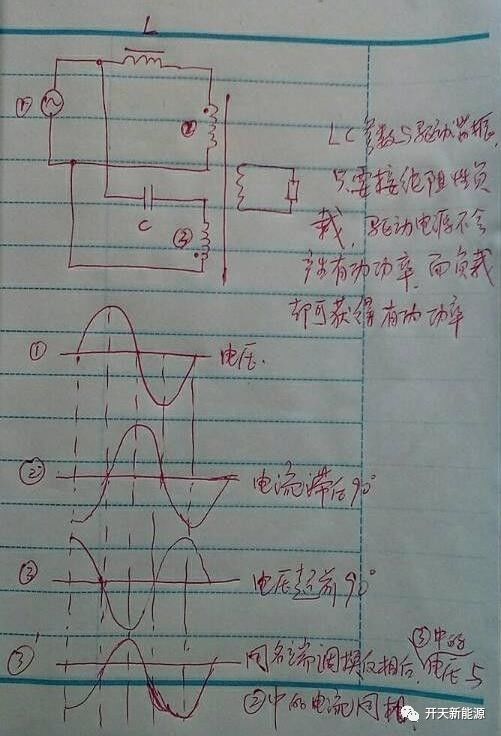 L
①
②
LC参数与驱动谐振,
只要接纯阻性负
载,驱动电源不会
产生有功功率,而负载
却可获得有功功率
C
③
① 电压.
② 电流滞后90°
③ 电压超前90°
③' 同名端调换反相后,③中的电压与
②中的电流同相.
开天新能源